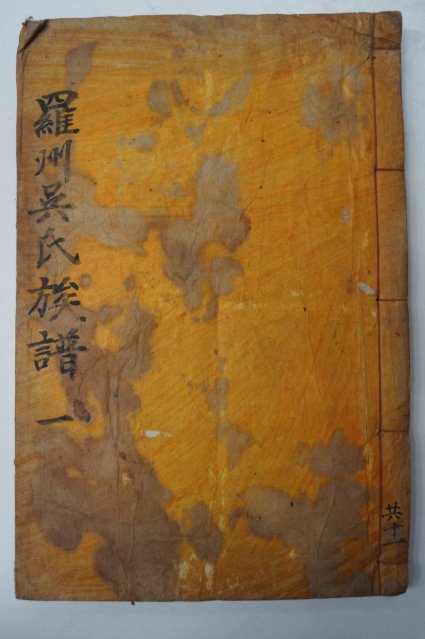 羅州吳氏族譜 一
共十一